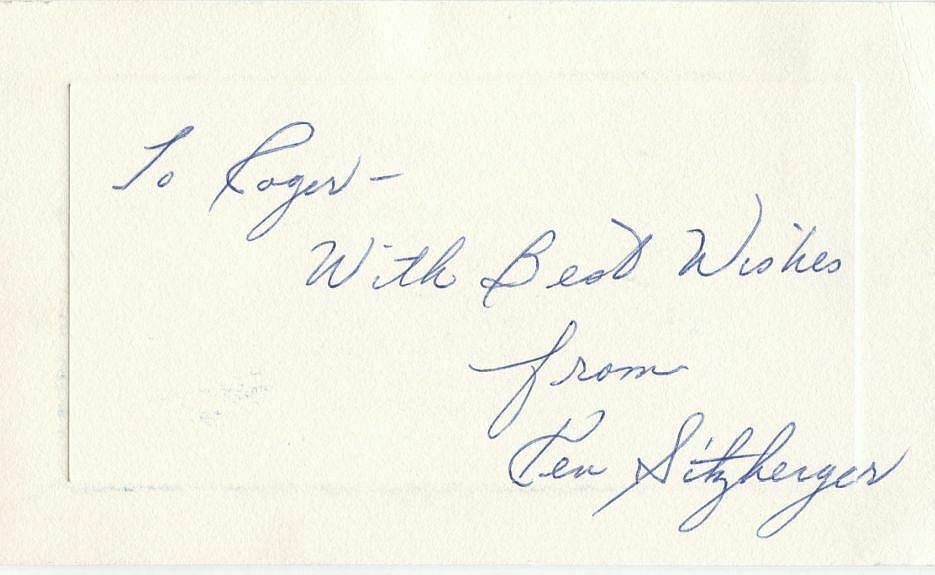 To Roger-
With Best Wishes
from
Ken Sitzberger